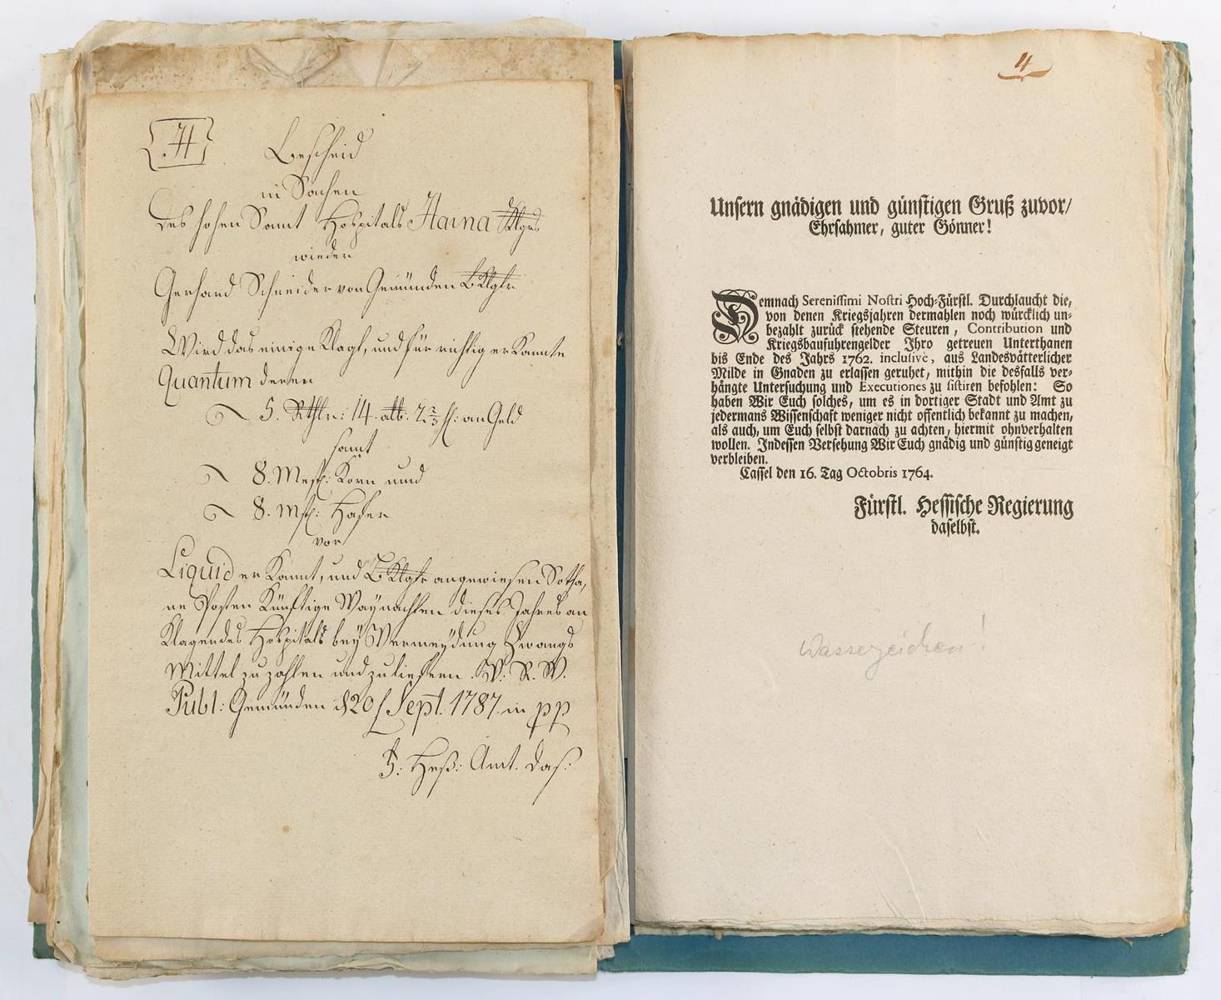 H
Bescheid
in Sachen
des hohen Samt Hospitals Haina Klgrs
wieder
Gerhard Schneider von Gemünden Bklgtr
Wird das einige Klagl, und für richtig erkannte
Quantum deren
5. Rthlr: 14. alb. 2 2/3 hl: an Geld
samt
8. Mest: Korn und
8. Mst: Hafer
vor
Liquid erkannt, und Bklgtr angewiesen Sotha,
ne Posten künftige Waynachten dieses Jahres an
Klagendes Hospitals bey Vermeydung Zwangs
Mittel zu zahlen und zu liefern. V. R. W.
Publ: Gemünden d 20 Sept. 1787. in pp
F: Heß: Amt. das:
4
Unsern gnädigen und günstigen Gruß zuvor/
Ehrsahmer, guter Gönner!
Demnach Serenissimi Nostri Hoch-Fürstl. Durchlaucht die,
von denen Kriegsjahren dermahlen noch würcklich un-
bezahlt zurück stehende Steuren, Contribution und
Kriegsbaufuhrengelder Ihro getreuen Unterthanen
bis Ende des Jahrs 1762. inclusive, aus Landesvätterlicher
Milde in Gnaden zu erlassen geruhet, mithin die desfalls ver-
hängte Untersuchung und Executiones zu sistiren befohlen: So
haben Wir Euch solches, um es in dortiger Stadt und Amt zu
jedermans Wissenschaft weniger nicht offentlich bekannt zu machen,
als auch, um Euch selbst darnach zu achten, hiermit ohnverhalten
wollen. Indessen Versehung Wir Euch gnädig und günstig geneigt
verbleiben.
Cassel den 16. Tag Octobris 1764.
Fürstl. Hessische Regierung
daselbst.
Wasserzeichen!